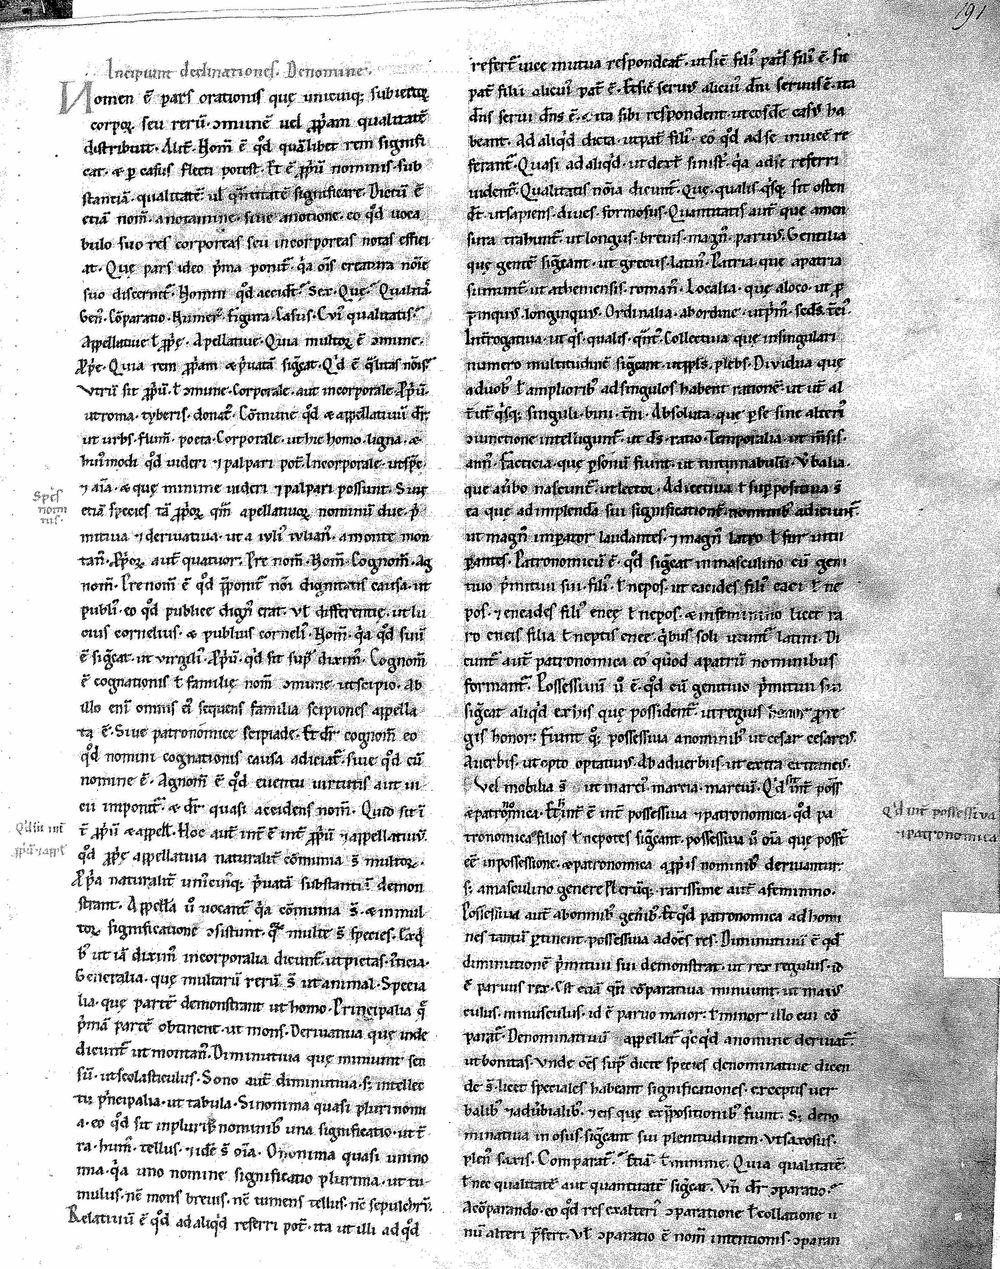 191
Incipiunt declinationes. De nomine.
Nomen ē pars orationis quę unicuiq; subiectoꝝ
corpoꝝ seu rerū ɔmunē vel ꝓpam qualitatē
distribuit. Alit̄. Nom̄ ē qd̄ quālibet rem signifi
cat. & ꝑ casus flecti potest. Et ē ꝓpriū nominis sub
stantiā. qualitatē ul quantitatē significare. Dictū ē
etiā nom̄. a notamine. siue a notione. eo qd̄ uoca
bulo suo res corporeas seu incorporeas notas effici
at. Que pars ideo pͥma ponit̄. qͥa oīs creatura noīe
suo discernit̄. Nomini qd̄ accidt̄. Sex. Quę. Qualitas
Gen̄. Cōparatio. Numerꝰ. Figura. Casus. Cui qualitatis.
Appellatiue ł ꝓpͥę. Apellatiue. Quia multoꝝ ē ɔmune.
Ꝓpͥe. Quia rem ꝓpam & pͥuatā sigͣcat. Qd̄ ē qͣlitas nōis.
Vtrū sit ꝓpͥū. ł ɔmune. Corporale. aut incorporale. Ꝓpͥū.
ut roma. tyberis. donatꝰ. Cōmune qd̄ & appellatiuū dr̄
ut urbs. flum̄. poeta. Corporale. ut hic homo. ligna. &
huiꝰmodi qd̄ uideri ⁊ palpari pot̄. Incorporale. ut spēs
⁊ aīa. & que minime uideri ⁊ palpari possunt. Sunt
etiā species tā ꝓpͥoꝝ qm̄ apellatiuoꝝ nominū due. pͥ
mitiua ⁊ deriuatiua. ut a iuli iulian. a monte mon
tan. Ꝓpͥoꝝ aut̄ quatuor. Pre nom̄. Nom̄. Cognom̄. Ag
nom̄. Prenom̄ ē qd̄ p̄ponit̄ nōi dignitatis causa. ut
publi. eo qd̄ publice dign̄ erat. Vł differentię. ut lu
cius cornelius. & publius corneliꝰ. Nom̄. qͥa qd̄ suū
ē sigͣcat. ut uirgiliꝰ. Ꝓpͥū. qd̄ sit supͣ diximꝰ. Cognom̄
ē cognationis ł familię nom̄ ɔmune ut scipio. Ab
illo enī omnis eiꝰ sequens familia scipiones appella
ta ē. Siue patronomice scipiade. Et dr̄ cognom̄ eo
qd̄ nomini cognationis causa adiciat̄. siue qd̄ cū
nomine ē. Agnom̄ ē qd̄ euentu uirtutis aut ui
cii imponit̄. & dr̄ quasi accidens nom̄. Quid sit ī
t̄ ꝓpͥū & appell. Hoc aut̄ int̄ ē int̄ ꝓpͥū ⁊ appellatiuū.
qd̄ ꝓpͥę appellatiua naturalit̄ cōmunia s̄ multoꝝ.
Ꝓpͥa naturalit̄ unicuiq;. pͥuatā substantiā demon
strant. Appella ū uocant̄ qͥa cōmunia s̄. & in mul
toꝝ significatione ɔsistunt. qͦꝝ multe s̄ species. Ex q
bꝰ ut iā diximꝰ incorporalia dicunt̄. ut pietas. iusticia.
Generalia. quę multarū rerū s̄ ut animal. Specia
lia. quę partē demonstrant ut homo. Principalia qͦꝝ
pͥmā partē obtinent. ut mons. Deriuatiua quę inde
dicunt̄ ut montan. Diminutiua quę minuunt sen
sū. ut scolasticulus. Sono aut̄ diminutiua. s; intellec
tu pͥncipalia. ut tabula. Sinonima quasi plurinom
a. eo qd̄ sit in pluribꝰ nominibꝰ una significatio. ut t̄
ra. humꝰ. tellus. ⁊ idē s̄ oīa. Omonima quasi unino
ma. qͥa uno nomine significatio plurima. ut tu
mulus. nē mons breuis. nē tumens tellus. nē sepulchrū.
Relatiuū ē qd̄ ad aliqd̄ referri pot̄. ita ut illi ad qd̄
Spēs
nomi
nis.
Qd sit int̄
ꝓpͥū ⁊ appł
refert̄ uice mutua respondeat̄. ut sic filiꝰ patris filiꝰ ē. sic
pat̄ filii alicuiꝰ pat̄ ē. Et sic seruꝰ alicuiꝰ dn̄i seruus ē. ita
dn̄s serui dn̄s ē. & ita sibi respondent ut eosdē casus ha
beant. Ad aliqd̄ dicta ut pat̄ filiꝰ. eo qd̄ ad se inuicē re
ferant̄. Quasi ad aliqd̄. ut dext̄ sinist̄. qͥa ad se referri
uident̄. Qualitatis nōia dicunt̄. Quę. qualis qͥsq; sit osten
dt̄. ut sapiens. diues. formosus. Quantitatis aut̄ quę a men
sura trahunt̄. ut longus. breuis. magnꝰ. paruus. Gentilia
quę gentē sigͣcant. ut grecus. latinꝰ. Patria. quę a patria
sumunt̄ ut atheniensis. romanꝰ. Localia. quę a loco. ut ꝓ
pinquꝰ. longinquꝰ. Ordinalia. ab ordine. ut pͥmꝰ. scd̄s. tciꝰ.
Int̄rogatiua. ut qͥs. qualis. qͣntꝰ. Collectiua quę in singulari
numero multitudinē sigͣcant. ut ppls. plebs. Diuidua quę
a duobꝰ ł amplioribꝰ ad singulos habent rationē. ut ut̄ al
t̄ ut̄ qͥsq; singuli. bini. t̄ni. Absoluta. quę ꝑ se sine alteriꝰ
ɔiunctione intelligunt̄. ut ds̄. ratio. Temporalia. ut m̄sis.
ann. Facticia. que ꝑ sonū fiunt. ut tintinnabulū. Vꝰbalia.
que a uꝰbo nascunt̄. ut lector. Adiectiua ł supposi­tiua s̄
ea que ad implenda sui significationē nominibꝰ adiciunt̄
ut magnꝰ impͣator laudantes. ⁊ magnꝰ latro ł fur uitu
ꝑantes. Patronomicū ē. qd̄ sigͣcat in masculino cū geni
tiuo pͥmitiui sui. filiꝰ ł nepos. ut eacides filiꝰ eaci ł ne
pos. ⁊ eneades filiꝰ enee ł nepos. & in feminino licet ra
ro eneis filia ł neptis enee. qͥbus soli utunt̄ latini. Di
cunt̄ aut̄ patronomica eo quod a patrū nominibus
formant̄. Possessiuū ū ē. qd̄ cū genitiuo pͥmitiui sui
sigͣcat aliqd̄ ex his quę possident̄. ut regius honor ꝓ re
gis honor. Fiunt qͦ; possessiua a nominibꝰ ut cesar cesareus.
A uerbis. ut opto optatiuus. Ab aduerbiis. ut extra extraneus.
Vel mobilia s̄ ut marci. marcia. marcuū. Qd̄ sit int̄ poss̄
& patronomica. Et int̄ ē int̄ possessiua ⁊ patronomica. qd̄ pa
tronomica filios ł nepotes sigͣcant. possessiua ū oīa que posst̄
eē in possessione. & patronomica a ꝓpͥis nominibꝰ deriuantur.
s; a masculino genere plerūq;. rarissime aut̄ a feminino.
Possessiua aut̄ ab omībꝰ genībꝰ. Et qd̄ patronomica ad homi
nes tantū ꝑtinent. possessiua ad om̄s res. Diminutiuū ē qd̄
diminutionē pͥmitiui sui demonstrat. ut rex regulus. id
ē paruus rex. Est etiā qn̄ cōparatiua minuunt̄. ut maius
culus. minusculus. id ē paruo maior. ł minor illo cui cō
parat̄. Denominatiuū appellat̄ qͥcqd a nomine deriuat̄.
ut bonitas. Vnde om̄s supͣ dicte species denominatiue dicen
de s̄. licet speciales habeant significationes. exceptis uer
balibꝰ ⁊ aduꝰbialibꝰ. ⁊ eis quę ex p̄positionibꝰ fiunt. S; deno
minatiua in osus sigͣcant sui plenitudinem. Vt saxosus.
plenꝰ saxis. Comparat̄. Etiā ł minime. Quia qualitatē
ł nec qualitatē aut quantitatē sigͣcat. Vn̄ dr̄ ɔparatio.
A cōparando. eo qd̄ res ex alteriꝰ ɔparatione ł collatione u
nū alteri p̄fert. Vł ɔparatio ē nom̄ intentionis. ɔparan
Qd̄ int̄ possessiua
⁊ patronomica